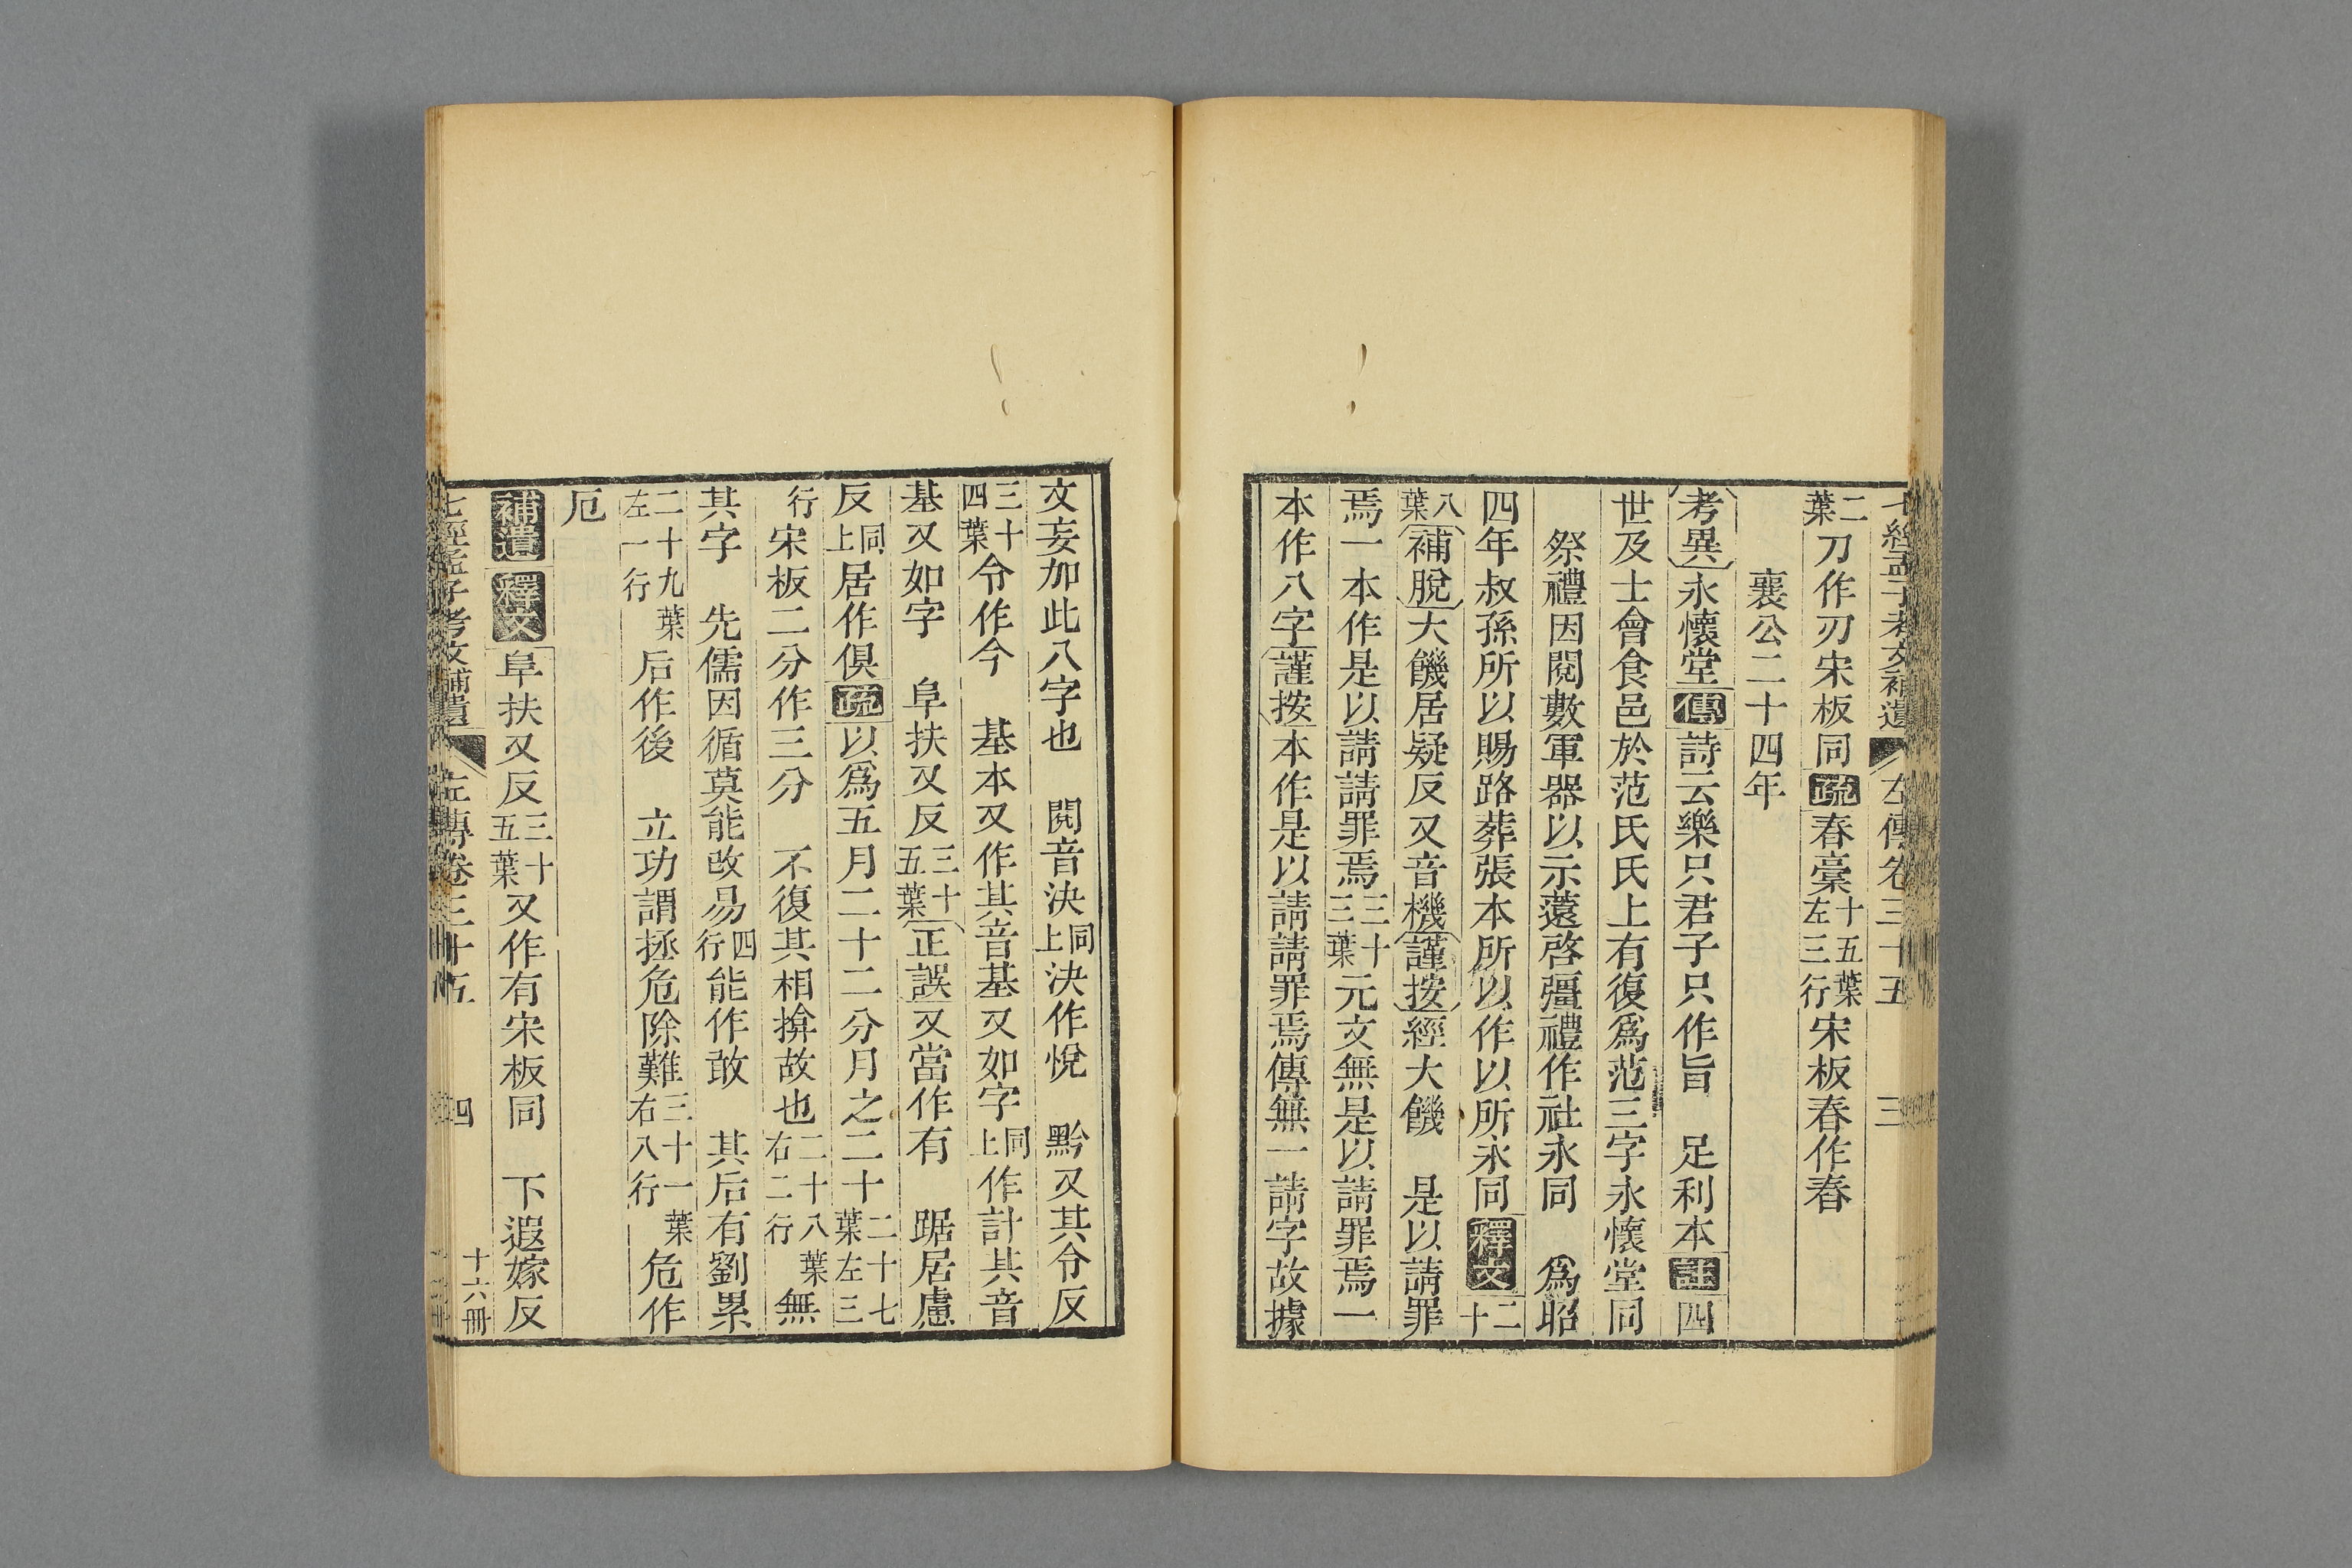 七經孟子考文補遺 左傳卷三十五 三
二葉刀作刃宋板同疏春稾十五葉左三行宋板春作舂
襄公二十四年
考異永懷堂傳詩云樂只君子只作旨 足利本註四
世及士會食邑於范氏氏上有復爲范三字永懷堂同
祭禮因閱數軍器以示薳啓彊禮作社永同 爲昭
四年叔孫所以賜路葬張本所以作以所永同釋文二十
八葉補脫大饑居疑反又音機謹按經大饑 是以請罪
焉一本作是以請請罪焉三十三葉元文無是以請罪焉一
本作八字謹按一本作是以請請罪焉傳無一請字故據
文妄加此八字也 閱音決同上決作悅 黔又其令反
三十四葉令作今 基本又作其音基又如字同上作計其音
基又如字 阜扶又反三十五葉正誤又當作有 踞居慮
反同上居作倶疏以爲五月二十二分月之二十二十七葉左三
行宋板二分作三分 不復其相揜故也二十八葉右二行無
其字 先儒因循莫能改易四行能作敢 其后有劉累
二十九葉左一行后作後 立功謂拯危除難三十一葉右八行危作
厄
補遺釋文阜扶又反三十五葉又作有宋板同 下遐嫁反
七經孟子考文補遺 左傳卷三十五 四 十六冊